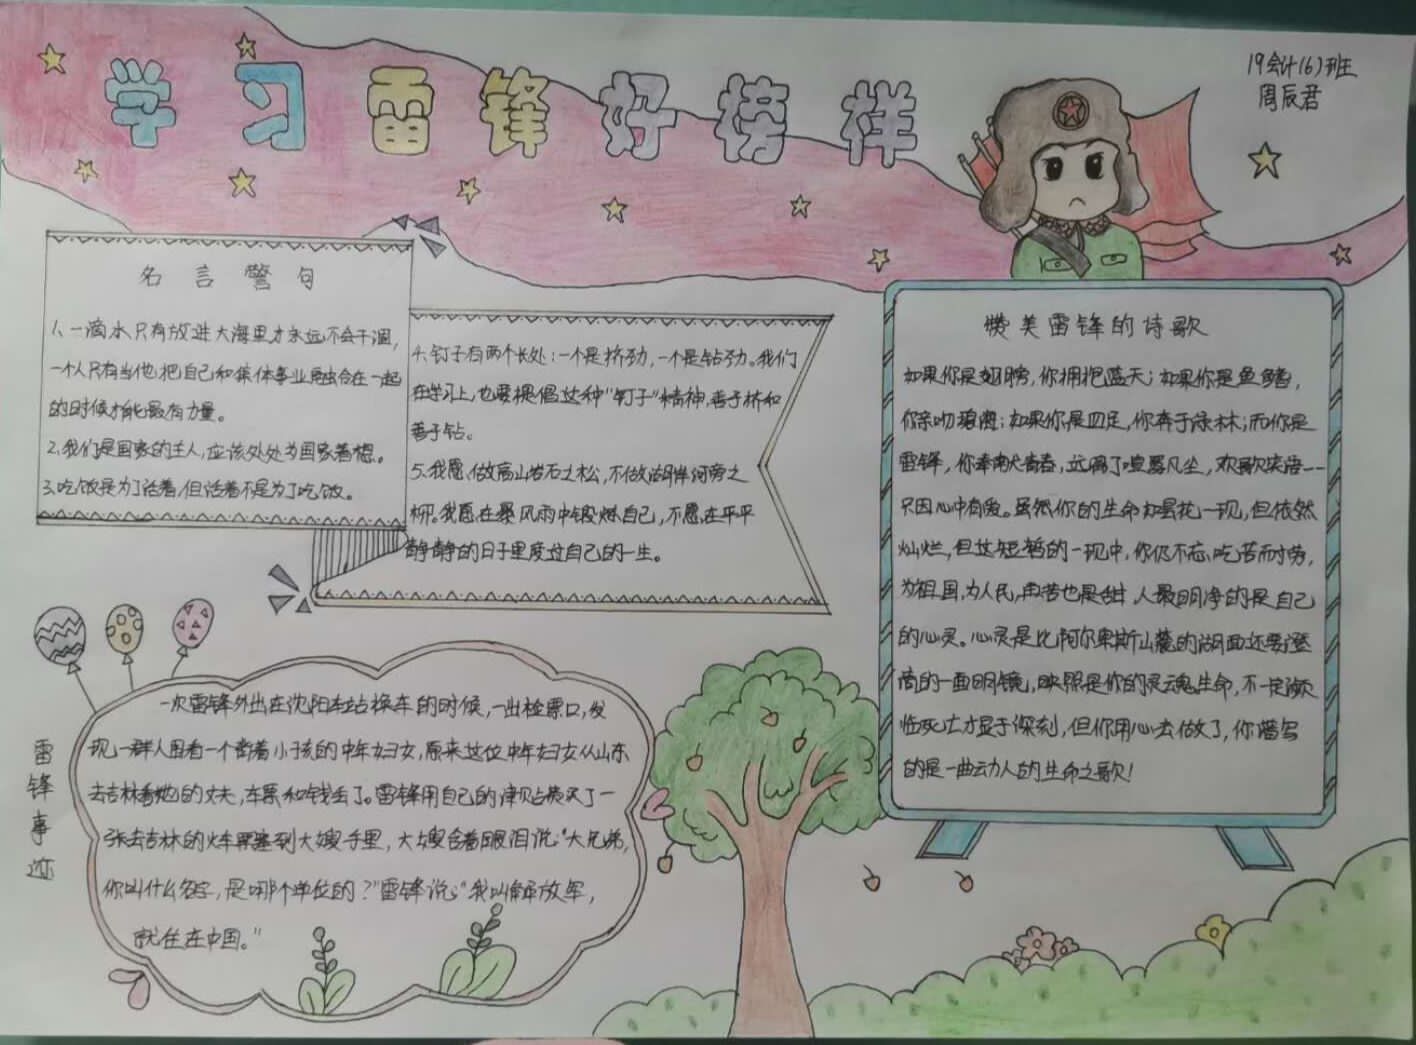 学习雷锋好榜样
19会计(6)班
周辰君
名言警句
1、一滴水只有放进大海里才永远不会干涸,
一个人只有当他把自己和集体事业融合在一起
的时候才能最有力量。
2、我们是国家的主人,应该处处为国家着想。
3、吃饭是为了活着,但活着不是为了吃饭。
4、钉子有两个长处:一个是挤劲,一个是钻劲。我们
在学习上,也要提倡这种"钉子"精神,善于挤和
善于钻。
5、我愿做高山岩石之松,不做湖岸河旁之
柳。我愿在暴风雨中锻炼自己,不愿在平平
静静的日子里度过自己的一生。
赞美雷锋的诗歌
如果你是翅膀,你拥抱蓝天;如果你是鱼鳍,
你亲吻碧海;如果你是四足,你奔于绿林;而你是
雷锋,你奉献青春,远离了喧嚣凡尘,欢歌笑语--
只因心中有爱。虽然你的生命如昙花一现,但依然
灿烂,但这短暂的一现中,你仍不忘吃苦而耐劳,
为祖国,为人民,再苦也是甜,人最明净的是自己
的心灵。心灵是比阿尔卑斯山麓的湖面还要澄
的一面明镜,映照是你的灵魂生命,不一定濒
临死亡才显于深刻,但你用心去做了,你谱写
的是一曲动人的生命之歌!
雷锋事迹
一次雷锋外出在沈阳车站换车的时候,一出检票口,发
现一群人围看一个背着小孩的中年妇女,原来这位中年妇女从山东
去吉林看她的丈夫,车票和钱丢了。雷锋用自己的津贴费买了一
张去吉林的火车票塞到大嫂手里,大嫂含着眼泪说:"大兄弟,
你叫什么名字,是哪个单位的?"雷锋说:"我叫解放军,
就住在中国。"